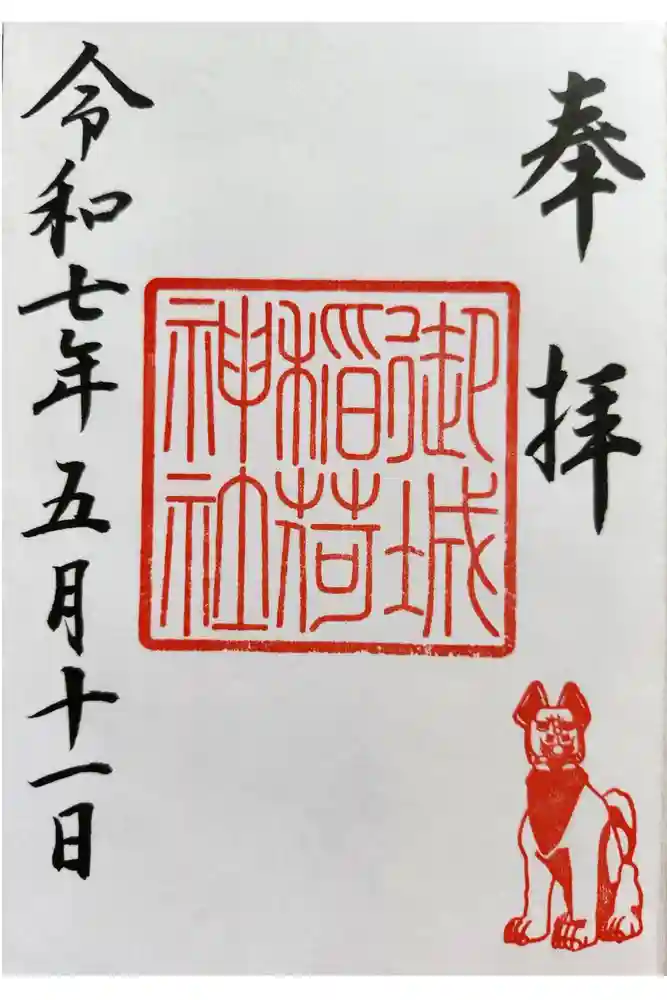 奉拝
御城
稲荷
神社
令和七年五月十一日